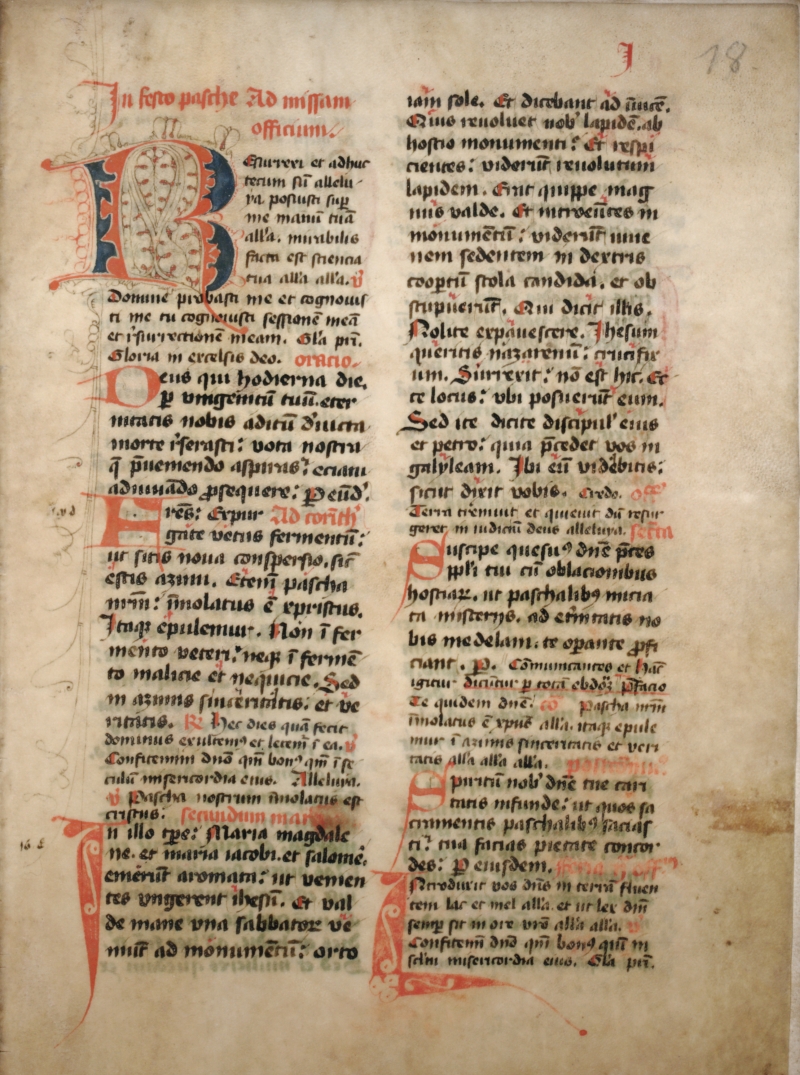 I
18
In festo pasche Ad missam
officium.
Resurrexi et adhuc
tecum sū allelu
ya. posuisti sup̄
me manū tuā
all'a. mirabilis
facta est sciencia
tua all'a all'a. v̄
Domine probasti me et cognouis
ti me tu cognouisti sessionē meā
et r̄surrectionē meam. Gl'a pr̄i.
Gloria in excelsis deo. oracio.
Deus qui hodierna die.
p̲ vnigenitū tuū. eter
nitatis nobis aditū d'uicta
morte r̄serasti: vota nostra
q̄ p̄ueniendo aspiras: eciam
adiuuādo ꝓsequere: P eūd'.
Fres: Expur Ad corinth'
gate vetus fermentū:
ut sitis noua conspersio. sic̄
estis azimi. Eteni pascha
nr̄m: ī̄molatus ē xpristus.
Itaqꝫ epulemur. Non ī fer
mento veteri: neqꝫ ī fermē
to malicie et nequicie. Sed
in azimis sinceritatis: et ve
ritatis. Re Hec dies quā fecit
dominus exultemꝰ et letem̄ ī ea. v̄
Confitemini dnō qm̄ bonꝰ qm̄ ī se
culū misericordia eius. Alleluya.
v̄ Pascha nostrum ī̄molatus est
cristus. secundum mar
In illo tp̄e: Maria magdale
ne. et maria iacobi. et salomē.
emerūt aromata: ut venien
tes vngerent ihesū. Et val
de mane vna sabbatoꝝ ve
niūt ad monumētū: orto
iam sole. Et dicebant ad īuicē.
Quis reuoluet nob' lapidē. ab
hostio monumenti: Et respi
cientes: viderūt reuolutum
lapidem. Erat quippe mag
nus valde. Et introeūtes in
monumētū: viderūt iuue
nem sedentem in dextris
coopertū stola candida. et ob
stupuerūt. Qui dicit illis.
Nolite expauescere. Ihesum
queritis nazarenū: crucifix
um. Surrexit: nō est hic. Ec
ce locus: vbi posuerūt eum.
Sed ite dicite discipul' eius
et petro: quia p̄cedet vos in
galyleam. Ibi eū videbitis:
sicut dixit vobis. Credo. off'
Terra tremuit et quieuit dū resur
geret in iudiciū deus alleluya. secreta
Suscipe quesuꝰ dn̄e p̄ces
ppl'i tui cū oblacionibus
hostiaꝝ. ut paschalibꝫ inicia
ta misterijs. ad et̄nitatis no
bis medelam. te opante ꝓfi
ciant. P. Cōmunicantes et hāc
igitur dicātur p̲ totā ebdōꝫ p̄facio
Te quidem dn̄e. co Pascha nr̄m
ī̄molatus ē xpūs all'a. itaqꝫ epule
mur ī azimis sinceritatis et veri
tatis all'a all'a all'a.
Spiritū nob' dn̄e tue cari
tatis infunde: ut quos sa
cramentis paschalibꝫ sacias
ti: tua facias pietate concor
des: P eiusdem.
Introduxit vos dn̄s in terrā fluen
tem lac et mel all'a. et ut lex dn̄i
semp̲ sit in ore vr̄o all'a all'a. v̄
Confitem̄ dnō qm̄ bonꝰ qm̄ in
sclm̄ misericordia eius. Gl'a pr̄i.